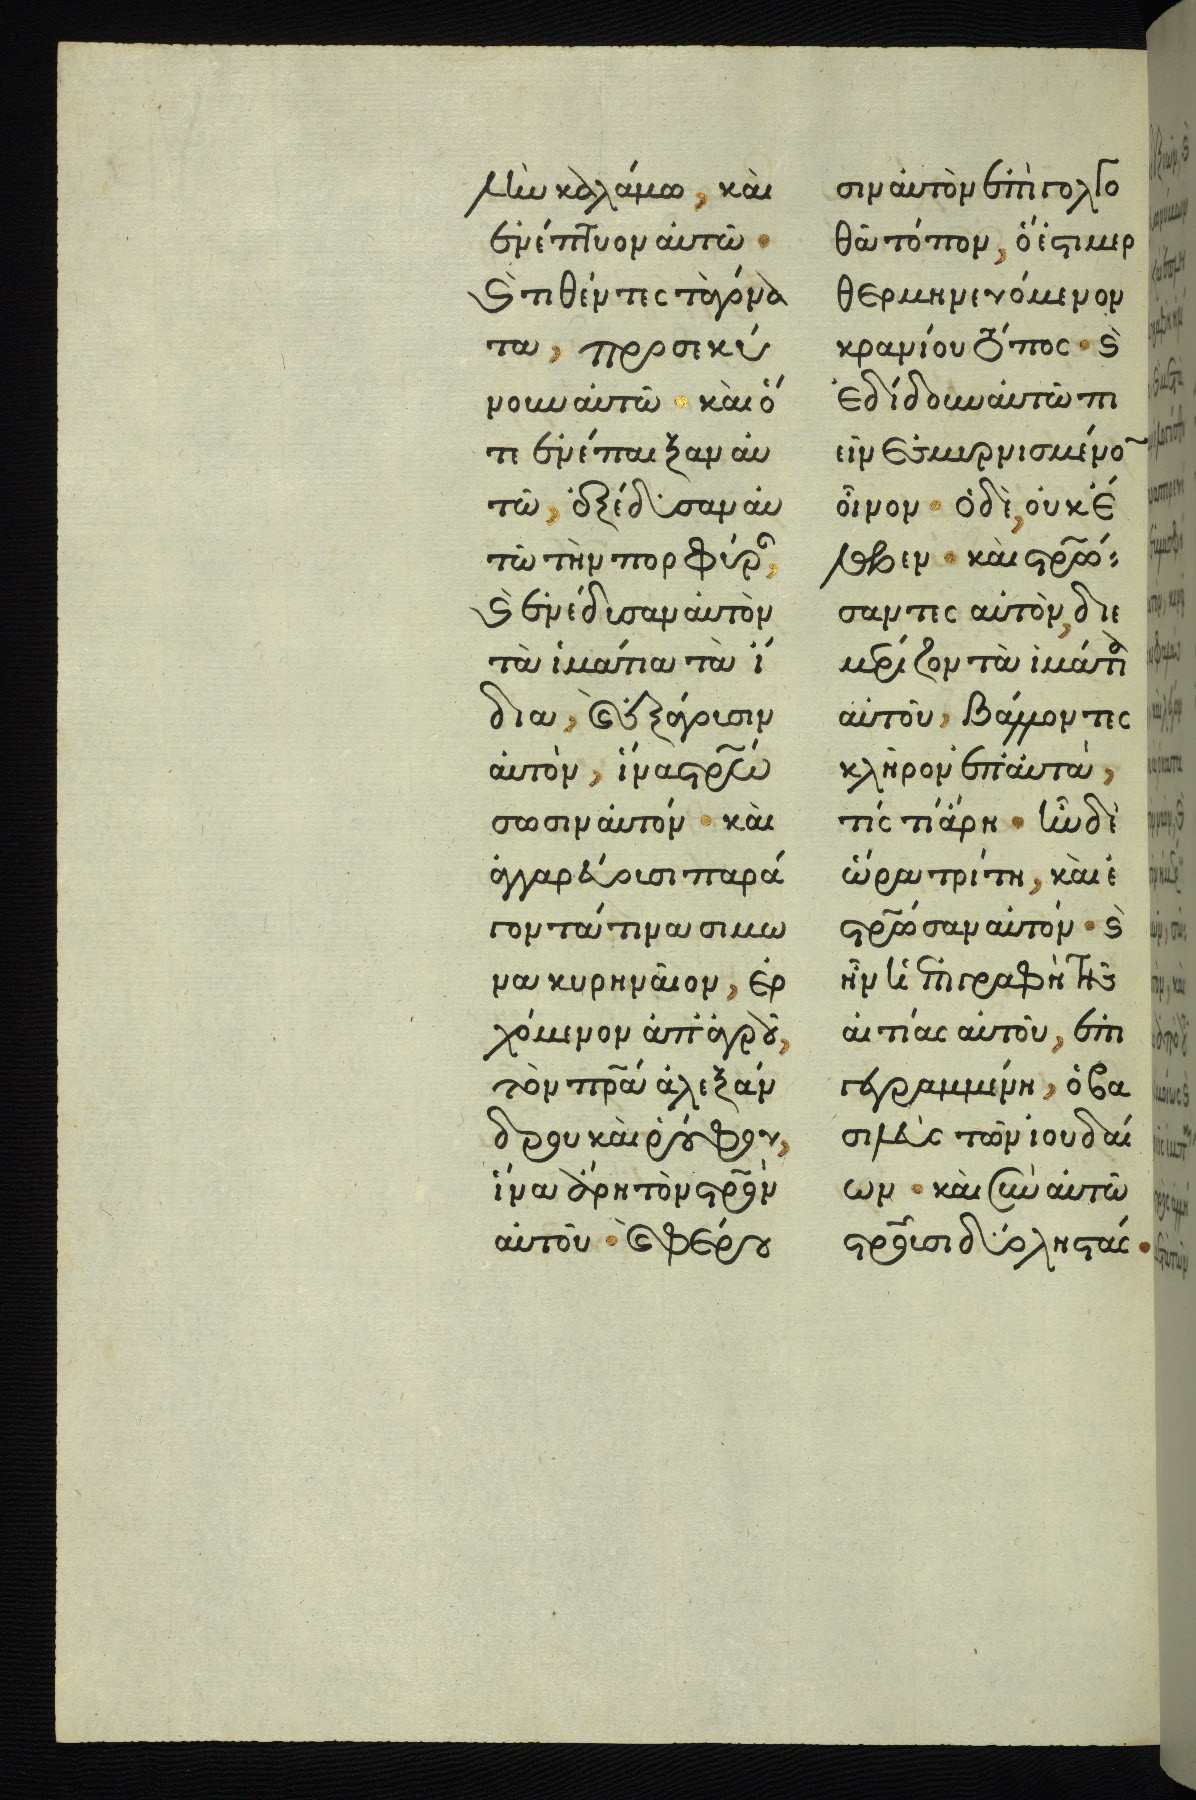 λὴν καλάμω, καὶ
ἐνέπτυον αὐτῶ·
καὶ τιθέντες τὰ γόνα
τα, προσεκύ
νουν αὐτῶ· καὶ ὅ
τε ἐνέπαιξαν αὐ
τῶ, ἐξέδυσαν αὐ
τὸ τὴν πορφύρ(αν),
καὶ ἐνέδυσαν αὐτὸν
τὰ ἱμάτια τὰ ἴ
δια, καὶ ἐξάγουσιν
αὐτὸν, ἵνα σταυρώ
σωσιν αὐτόν· καὶ
ἀγγαρεύουσι παρά
γοντά τινα σίμω
να κυρηναῖον, ἐρ
χόμενον ἀπ' ἀγροῦ,
τὸν πρα ἀλεξάν
δρου καὶ ῥούφου,
ἵνα ἄρη τὸν στρον
αὐτοῦ· καὶ φέρου
σιν αὐτὸν ἐπὶ γολγο
θᾶ τόπον, ὅ ἐστι μεθ
θερμηνευόμενον
κρανίου τόπος· καὶ
ἐδίδουν αὐτῶ πι
εῖν ἐσμυρνισμένο(ν)
οἶνον· ὁ δὲ, οὐκ ἔ
λαβεν· καὶ σταυρώ
σαντες αὐτὸν, διε
μερίζον τὰ ἱμάτια
αὐτοῦ, βάλλοντες
κλῆρον ἐπ' αὐτὰ,
τίς τί ἄρη· ἦν δὲ
ὥρα τρίτη, καὶ ἐ
σταύρωσαν αὐτόν· καὶ
ἦν ἡ ἐπιγραφὴ τῆς
αἰτίας αὐτοῦ, ἐπι
γεγραμμένη, ὁ βα
σιλεὺς τῶν ἰουδαί
ων· καὶ σὺν αὐτῶ
σταυροῦσι δύο ληστάς·